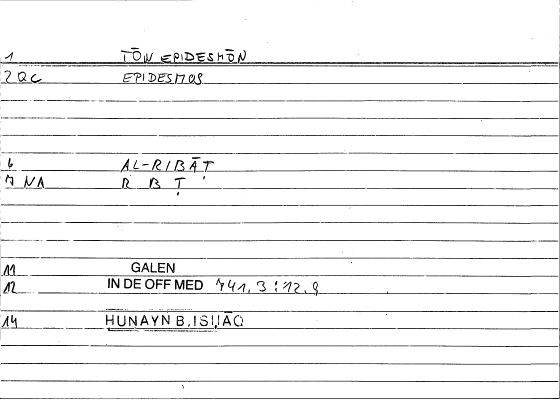 1 TŌN EPIDESMŌN
2 QC EPIDESMOS
6 AL-RIBĀṬ
7 NA R B Ṭ
11 GALEN
12 IN DE OFF MED 741,3 : 12,9
14 ḤUNAYN B. ISḤĀQ